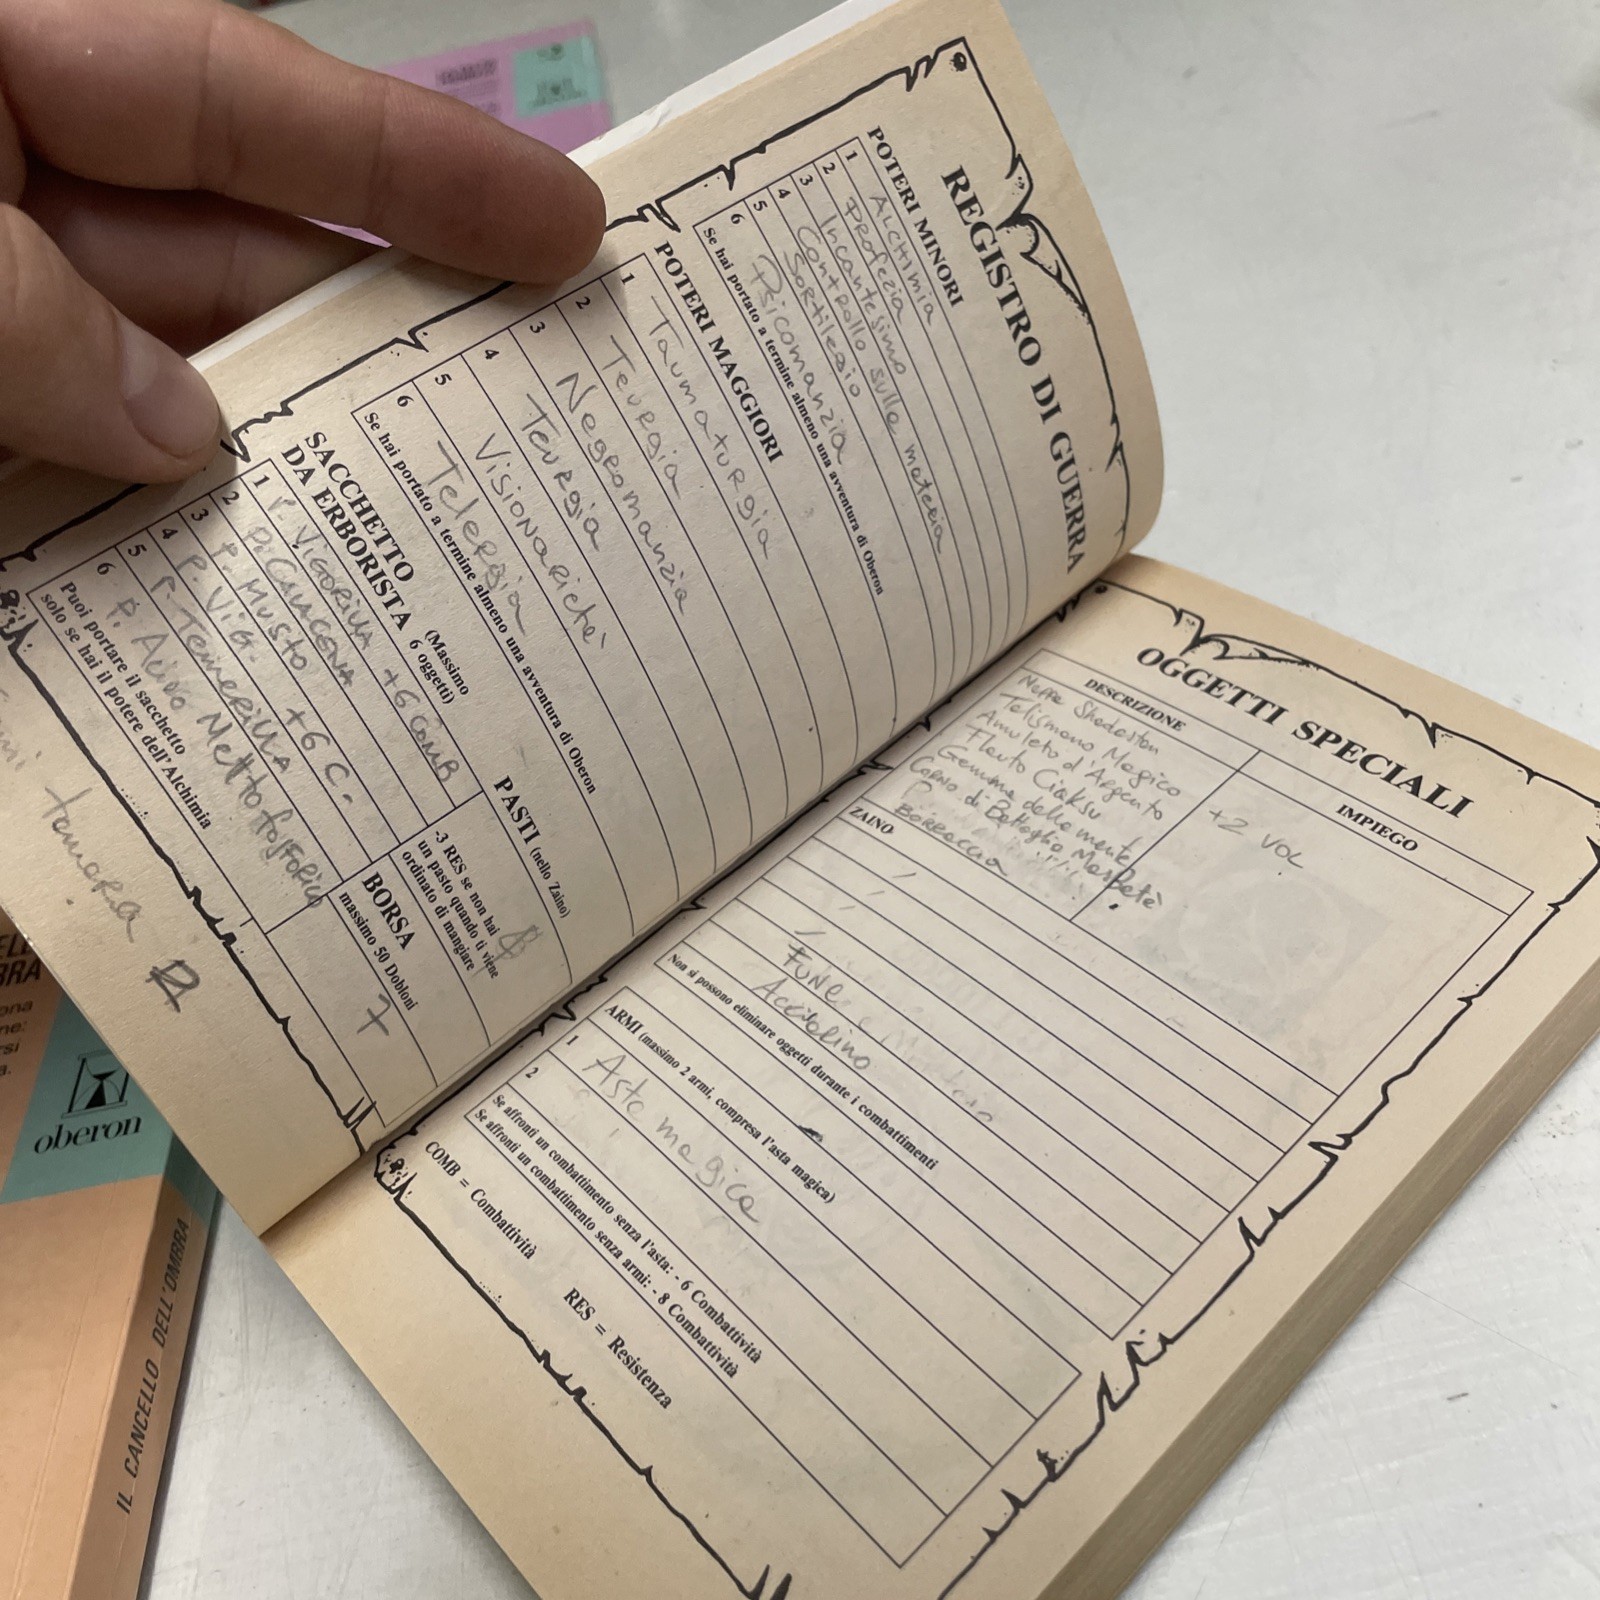 REGISTRO DI GUERRA
POTERI MINORI
1 ALCHIMIA
2 PROFEZIA
3 Incantesimo
4 Controllo sulle materia
5 Sortilegio
6 Psicomanzia
Se hai portato a termine almeno una avventura di Oberon
POTERI MAGGIORI
1 Taumaturgia
2 Teurgia
3 Negromanzia
4 Teurgia
5 Visionarietà
6 Telergia
Se hai portato a termine almeno una avventura di Oberon
SACCHETTO
DA ERBORISTA (Massimo
6 oggetti)
1 P. VIGORILLA +6 COMB
2 P. CALACENA
3 P. MUSTO +6 C.
4 P. VIG.
5 P. TEMERILLA
6 P. Acido Metto fosforico
Puoi portare il sacchetto
solo se hai il potere dell'Alchimia
PASTI (nello Zaino)
-3 RES se non hai
un pasto quando ti viene
ordinato di mangiare
BORSA
massimo 50 Dobloni
7
tamara
OGGETTI SPECIALI
DESCRIZIONE
IMPIEGO
Mappa Shadaston
Talismano Magico +2 VOL
Amuleto d'Argento
Flauto Ciaksu
Gemma della mente
Corno di Battaglia
BORRACCIA
ZAINO
FUNE
Acciarino
Non si possono eliminare oggetti durante i combattimenti
ARMI (massimo 2 armi, compresa l'asta magica)
1 Asta magica
2
Se affronti un combattimento senza l'asta: - 6 Combattività
Se affronti un combattimento senza armi: - 8 Combattività
COMB = Combattività
RES = Resistenza
oberon
IL CANCELLO DELL'OMBRA